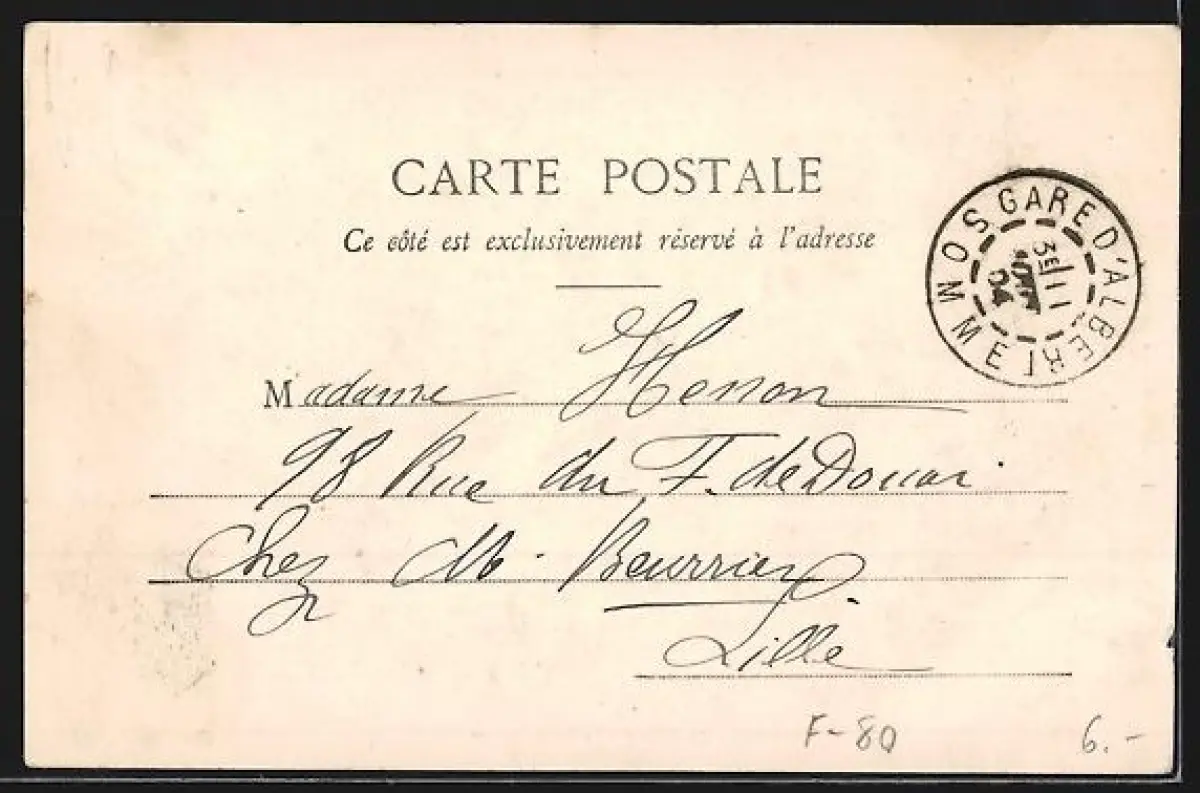 CARTE POSTALE
Ce côté est exclusivement réservé à l'adresse
GARE D'ALBERT
SOMME
3E 11
04
Madame Henon
98 Rue du F. de Douai
Chez M. Beurrier
Lille
F-80
6.-